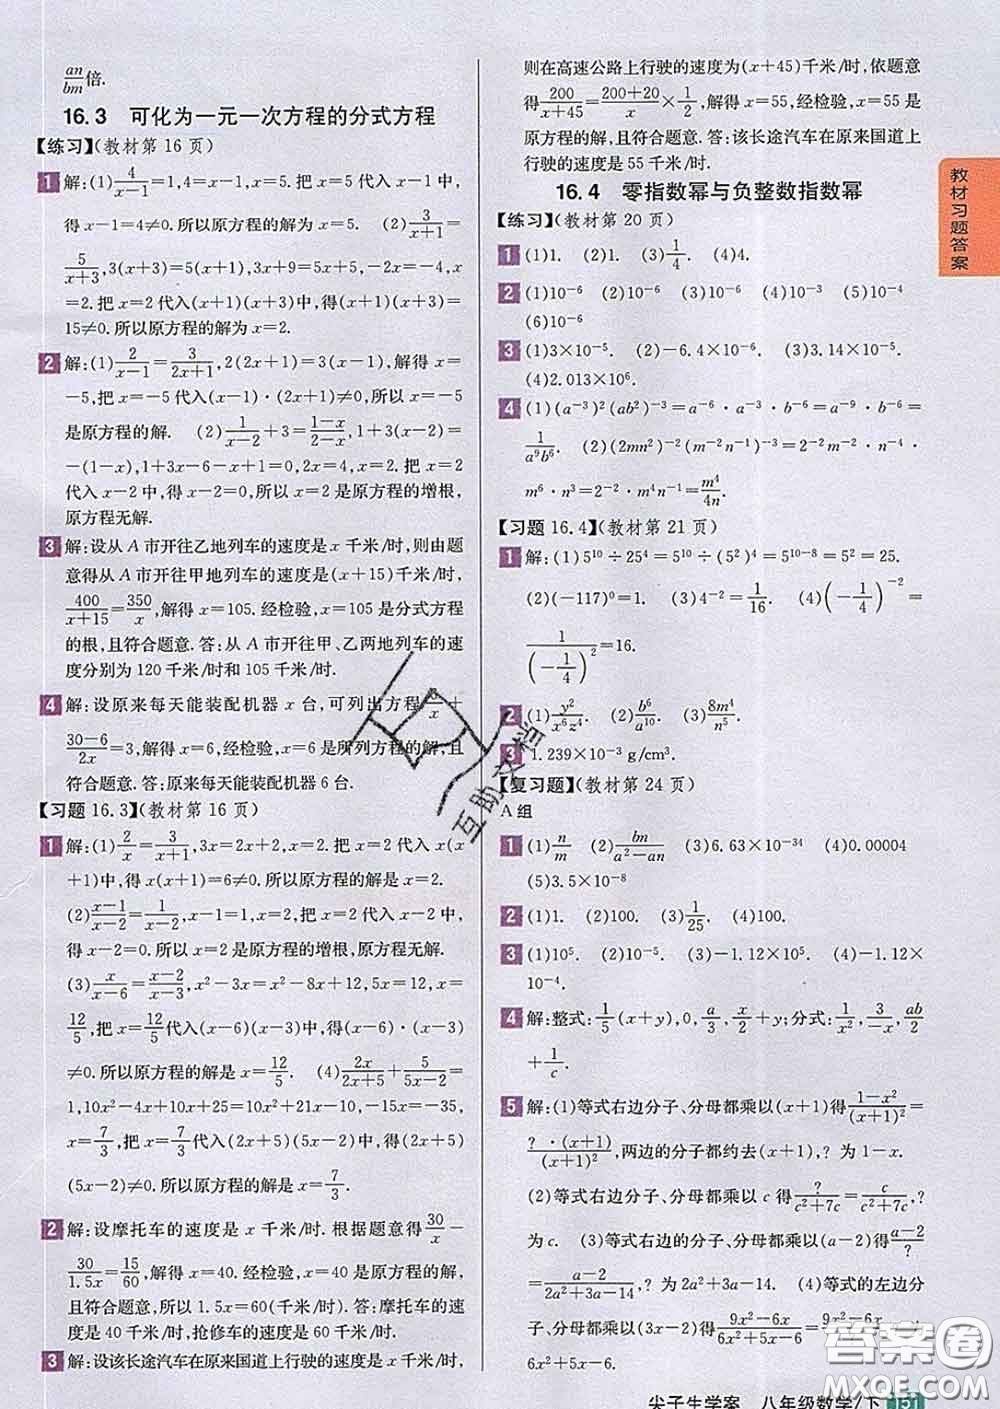 an/bm倍.
16.3 可化为一元一次方程的分式方程
【练习】(教材第 16 页)
1 解:(1) 4/(x−1)=1,4=x−1,x=5. 把 x=5 代入 x−1 中,
得 x−1=4≠0. 所以原方程的解为 x=5. (2) 3/(x+1)=
5/(x+3),3(x+3)=5(x+1),3x+9=5x+5,−2x=−4,x
=2. 把 x=2 代入(x+1)(x+3)中,得(x+1)(x+3)=
15≠0. 所以原方程的解为 x=2.
2 解:(1) 2/(x−1)=3/(2x+1),2(2x+1)=3(x−1),解得 x=
−5,把 x=−5 代入(x−1)·(2x+1)≠0,所以 x=−5
是原方程的解. (2) 1/(x−2)+3=(1−x)/(2−x),1+3(x−2)=
−(1−x),1+3x−6=−1+x,解得 x=2. 把 x=2
代入 x−2 中,得 x−2=0,所以 x=2 是原方程的增根,
原方程无解.
3 解:设从 A 市开往乙地列车的速度是 x 千米/时,则由题
意得从 A 市开往甲地列车的速度是(x+15)千米/时,
400/(x+15)=350/x,解得 x=105. 经检验,x=105 是分式方程
的根,且符合题意. 答:从 A 市开往甲、乙两地列车的速
度分别为 120 千米/时和 105 千米/时.
4 解:设原来每天能装配机器 x 台,可列出方程 6/x+
(30−6)/2x=3,解得 x=6,经检验,x=6 是所列方程的解,且
符合题意. 答:原来每天能装配机器 6 台.
【习题 16.3】(教材第 16 页)
1 解:(1) 2/x=3/(x+1),3x=2x+2,x=2. 把 x=2 代入 x(x
+1)中,得 x(x+1)=6≠0. 所以原方程的解为 x=2.
(2) (x−1)/(x−2)=1/(x−2),x−1=1,x=2,把 x=2 代入 x−2 中,得
x−2=0. 所以 x=2 是原方程的增根,原方程无解.
(3) x/(x−6)=(x−2)/(x−3),x²−3x=x²−8x+12,5x=12,x=
12/5,把 x=12/5 代入(x−6)(x−3)中,得(x−6)·(x−3)
≠0. 所以原方程的解是 x=12/5. (4) 2x/(2x+5)+5/(5x−2)=
1,10x²−4x+10x+25=10x²+21x−10,−15x=−35,
x=7/3,把 x=7/3 代入(2x+5)(5x−2)中,得(2x+5)
(5x−2)≠0. 所以原方程的解是 x=7/3.
2 解:设摩托车的速度是 x 千米/时. 根据题意得 30/x−
30/1.5x=15/60,解得 x=40. 经检验,x=40 是原方程的解,
且符合题意,所以 1.5x=60(千米/时). 答:摩托车的速
度是 40 千米/时,抢修车的速度是 60 千米/时.
3 解:设该长途汽车在原来国道上行驶的速度是 x 千米/时,
则在高速公路上行驶的速度为(x+45)千米/时,依题意
得 200/(x+45)=(200+20)/x×1/2,解得 x=55,经检验,x=55 是原
方程的解,且符合题意. 答:该长途汽车在原来国道上
行驶的速度是 55 千米/时.
16.4 零指数幂与负整数指数幂
【练习】(教材第 20 页)
1 (1)1. (2)1. (3)1/4. (4)4.
2 (1)10⁻⁶ (2)10⁻⁶ (3)10⁻⁶ (4)10⁻³ (5)10⁻⁶
(6)10⁻⁶
3 (1)3×10⁻⁵. (2)−6.4×10⁻⁶. (3)3.14×10⁻⁵.
(4)2.013×10⁶.
4 (1)(a⁻³)²(ab²)⁻³=a⁻⁶·a⁻³·b⁻⁶=a⁻⁹·b⁻⁶=
1/a⁹b⁶. (2)(2mn²)⁻²(m⁻²n⁻¹)⁻³=2⁻²·m⁻²·n⁻⁴·
m⁶·n³=2⁻²·m⁴n⁻¹=m⁴/4n.
【习题 16.4】(教材第 21 页)
1 解:(1)5¹⁰÷25⁴=5¹⁰÷(5²)⁴=5¹⁰⁻⁸=5²=25.
(2)(−117)⁰=1. (3)4⁻²=1/16. (4)(−1/4)⁻²
=1/(−1/4)²=16.
2 (1) y²/x⁶z⁴. (2) b⁶/a¹⁰. (3) 8m⁴/n⁵.
3 1.239×10⁻³ g/cm³.
【复习题】(教材第 24 页)
A 组
1 (1) n/m (2) bn/(a²−an) (3)6.63×10⁻³⁴ (4)0.00004
(5)3.5×10⁻⁸
2 (1)1. (2)100. (3)1/25. (4)100.
3 (1)10⁵. (2)10⁻⁵. (3)−1.12×10⁵. (4)−1.12×
10⁻⁴.
4 解:整式:1/5(x+y),0,a/3,x/2+y;分式:1/x²,3/−x,ab/2
+1/c.
5 解:(1)等式右边分子、分母都乘以(x+1)得(1−x²)/(x+1)²
=?·(x+1)/(x+1)²,两边的分子都约去(x+1),? 为 1−x.
(2)等式右边分子、分母都乘以 c 得 ?/(c²+7c)=c/(c²+7c),?
为 c. (3)等式右边的分子、分母都乘以(a−2)得(a−2)/?
=(a−2)/(2a²+3a−14),? 为 2a²+3a−14. (4)等式的左边分
子、分母都乘以(3x−2)得(9x²−6x)/(6x²+5x−6)=(9x²−6x)/?,
6x²+5x−6.
教材习题答案
互助文档
答案圈
MXQE.COM
尖子生学案 八年级数学/下 151